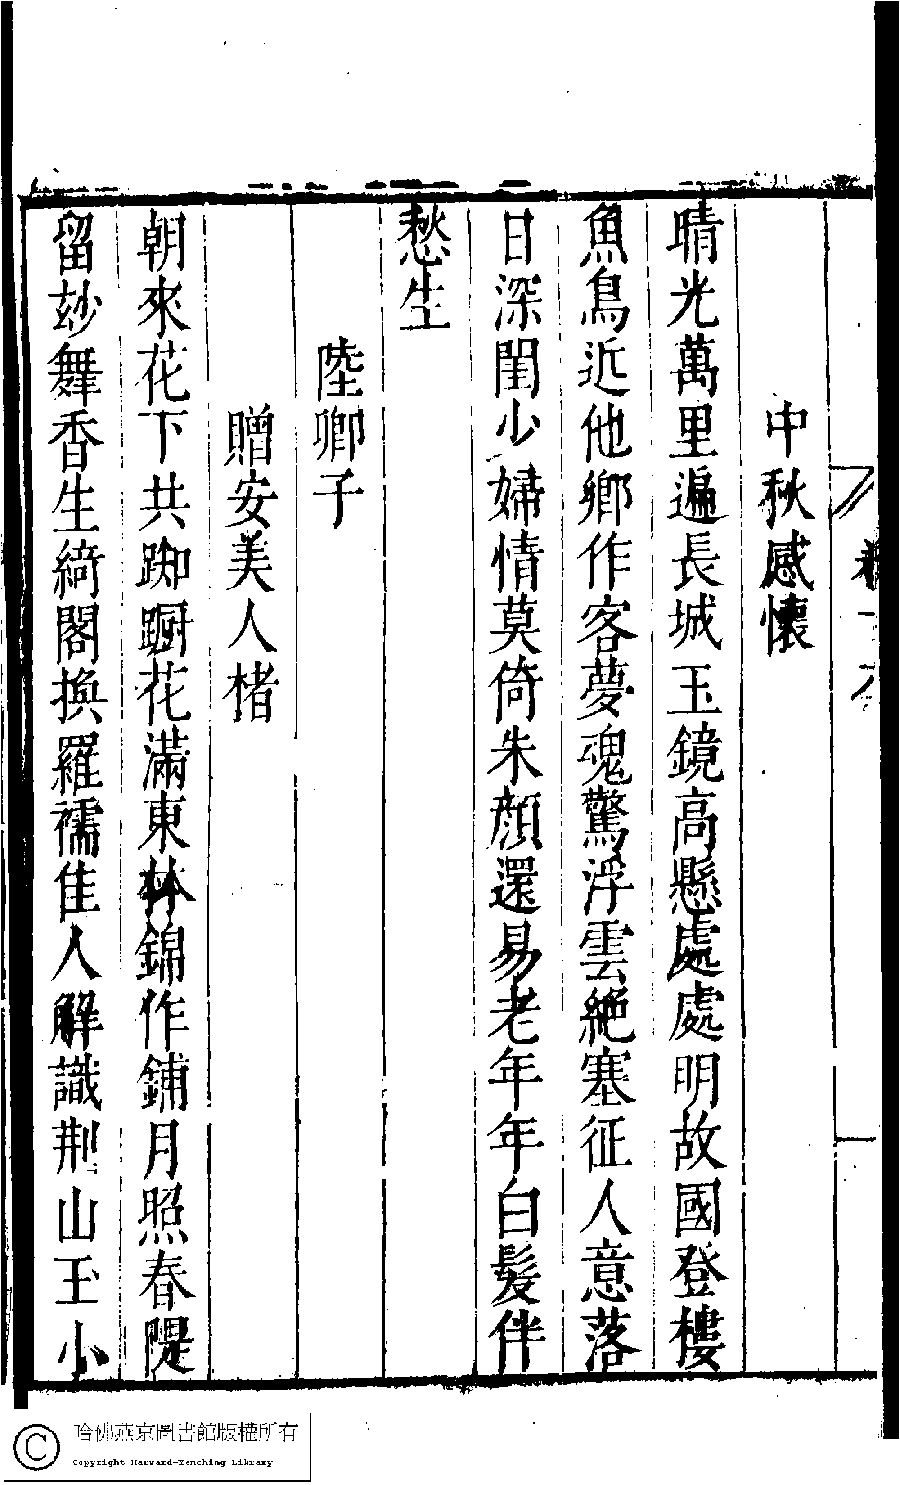 中秋感懷
晴光萬里遍長城玉鏡高懸處處明故國登樓
魚鳥近他鄉作客夢魂驚浮雲絶塞征人意落
日深閨少婦情莫倚朱顔還易老年年白髮伴
愁生
陸卿子
贈安美人楮
朝來花下共踟蹰花滿東林錦作鋪月照春隄
留妙舞香生綺閣換羅襦佳人解識荆山玉小
哈佛燕京圖書館版權所有
Copyright Harvard-Yenching Library